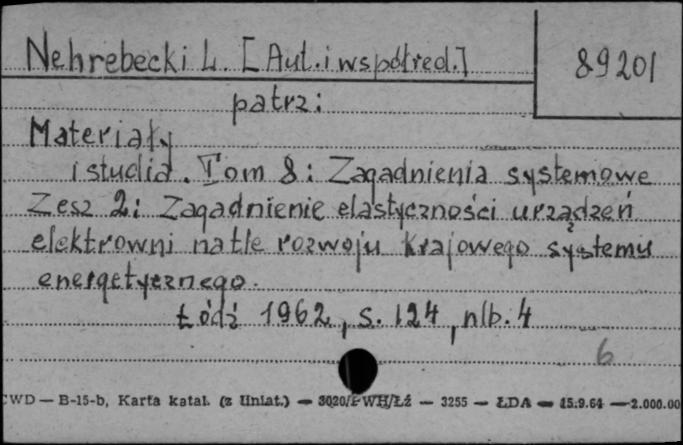 Nehrebecki L. [Aut. i współred.]
89201
patrz:
Materiały
i studia. Tom 8: Zagadnienia systemowe
Zesz 2: Zagadnienie elastyczności urządzeń
elektrowni na tle rozwoju krajowego systemu
energetycznego.
Łódź 1962, s. 124, nlb. 4
6
CWD — B-15-b, Karta katal. (z Uniat.) — 3020/PWH/Łź — 3255 — ŁDA — 15.9.64 — 2.000.00